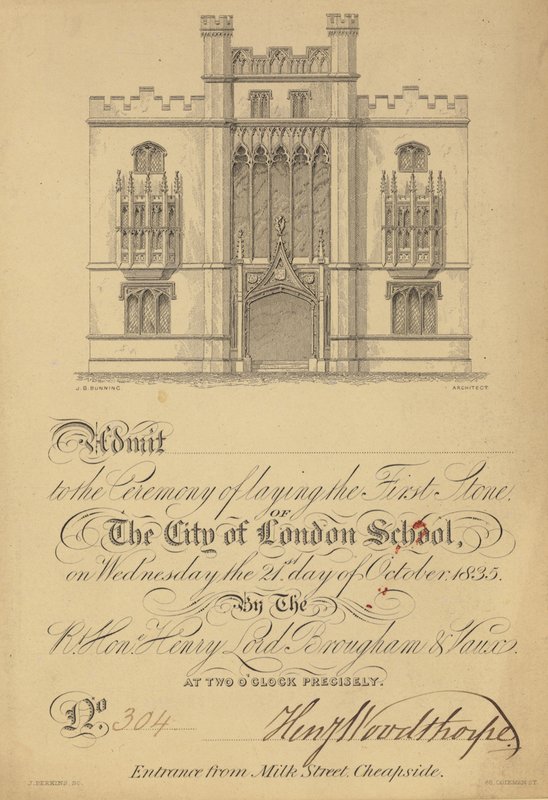 J. B. BUNNING. ARCHITECT.
Admit
to the Ceremony of laying the First Stone,
OF
The City of London School,
on Wednesday the 21st day of October 1835.
By The
Rt. Hon.e Henry Lord Brougham & Vaux.
AT TWO O'CLOCK PRECISELY.
No. 304 Heny Woodthorpe.
Entrance from Milk Street, Cheapside.
J. PERKINS, SC.